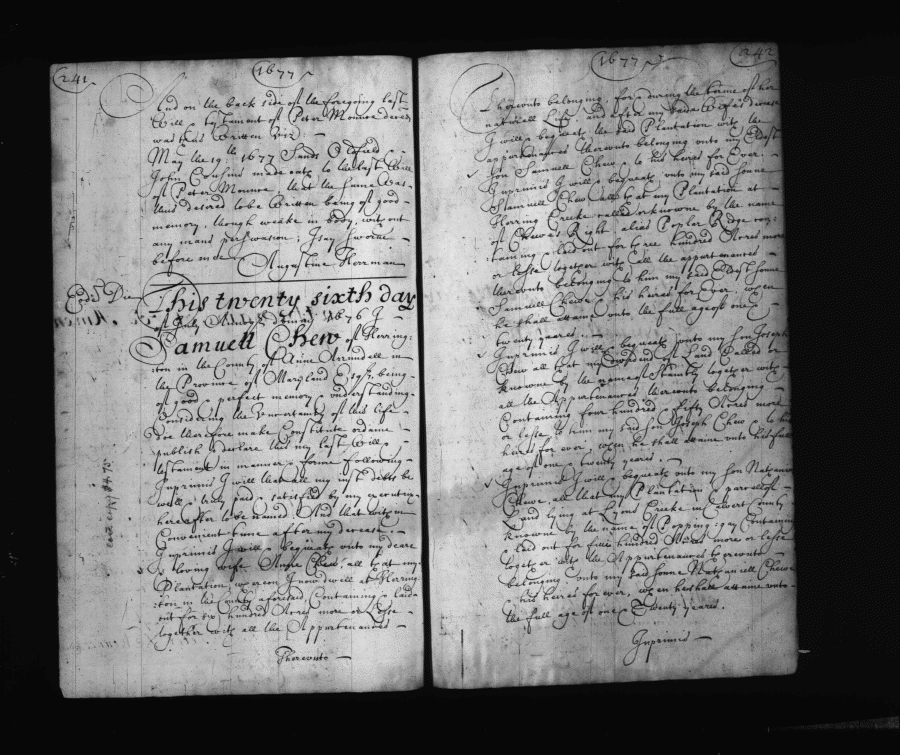 241
1677
And on the back side of the foregoing last
Will & testament of Peter Mounce
was thus Written Viz —
May the 19th 1677 Sands Oldfield
John Cousins made oath to the last Will
of Peter Mounce, that the same was
thus desired to be Written being of good
memory, though weake in body, without
any mans perswasion, Jsay sworne
before me Augustine Herrman
This twenty sixth day
of July 1676 J
Samuell Chew of Herring
:ton in the County of Anne Arundell in
the Province of Maryland Esqr. being
of good & perfect memory & understanding
Considering the Uncertainty of this life
doe therefore make Constitute ordaine
publish & declare this my last Will &
testament in manner & forme following
Jnprimis J will that all my just debts be
well & truly paid & satisfied by my executrix
hereafter to be named And that within
Convenient time after my decease:
Jnprimis J will & bequeath unto my deare
& loving wife Anne Chew, all that my
Plantation whereon J now dwell at Herring
:ton in the County aforesaid Containing & laid
out for two hundred Acres more or Lesse
together with all the Appurtenances
Thereunto —
242
1677
Thereunto belonging for & during the terme of her
naturall life and after my said Wifes decease
J will & bequeath the said Plantation with the
appurtenances thereunto belonging unto my Eldest
son Samuell Chew & to his heires for Ever.
Jnprimis J will & bequeath unto my said sonne
Samuell Chew all that my Plantation at
Herring Creeke called or knowne by the name
of Chews Right alias Poplar Ridge con:
:taining & laid out for three hundred Acres more
or lesse together with all the appurtenances
thereunto belonging to him my said Eldest sonne
Samuell Chew & his heires for Ever, when
he shall attaine unto the full age of one &
twenty yeares. —
Jnprimis J will & bequeath unto my son Joseph
Chew all that my of Land Called or
knowne by the name of together with
all the Appurtenances thereunto belonging
Containing four hundred & fifty Acres more
or lesse to him my said son Joseph Chew to his
heires for ever, when he shall attaine unto his full
age of one & twenty yeares. —
Jnprimis J will & bequeath unto my son Nathaniel
Chew, all that my Plantation & parcell of
Land lying at Lyons Creeke in Calvert County
knowne by the name of Popping: gay Containing
& laid out for five hundred Acres more or lesse
together with the Appurtenances thereunto
belonging unto my said sonne Nathaniell Chew
& his heires for ever, when he shall attaine unto
the full age of one & Twenty yeares.
Jnprimis —